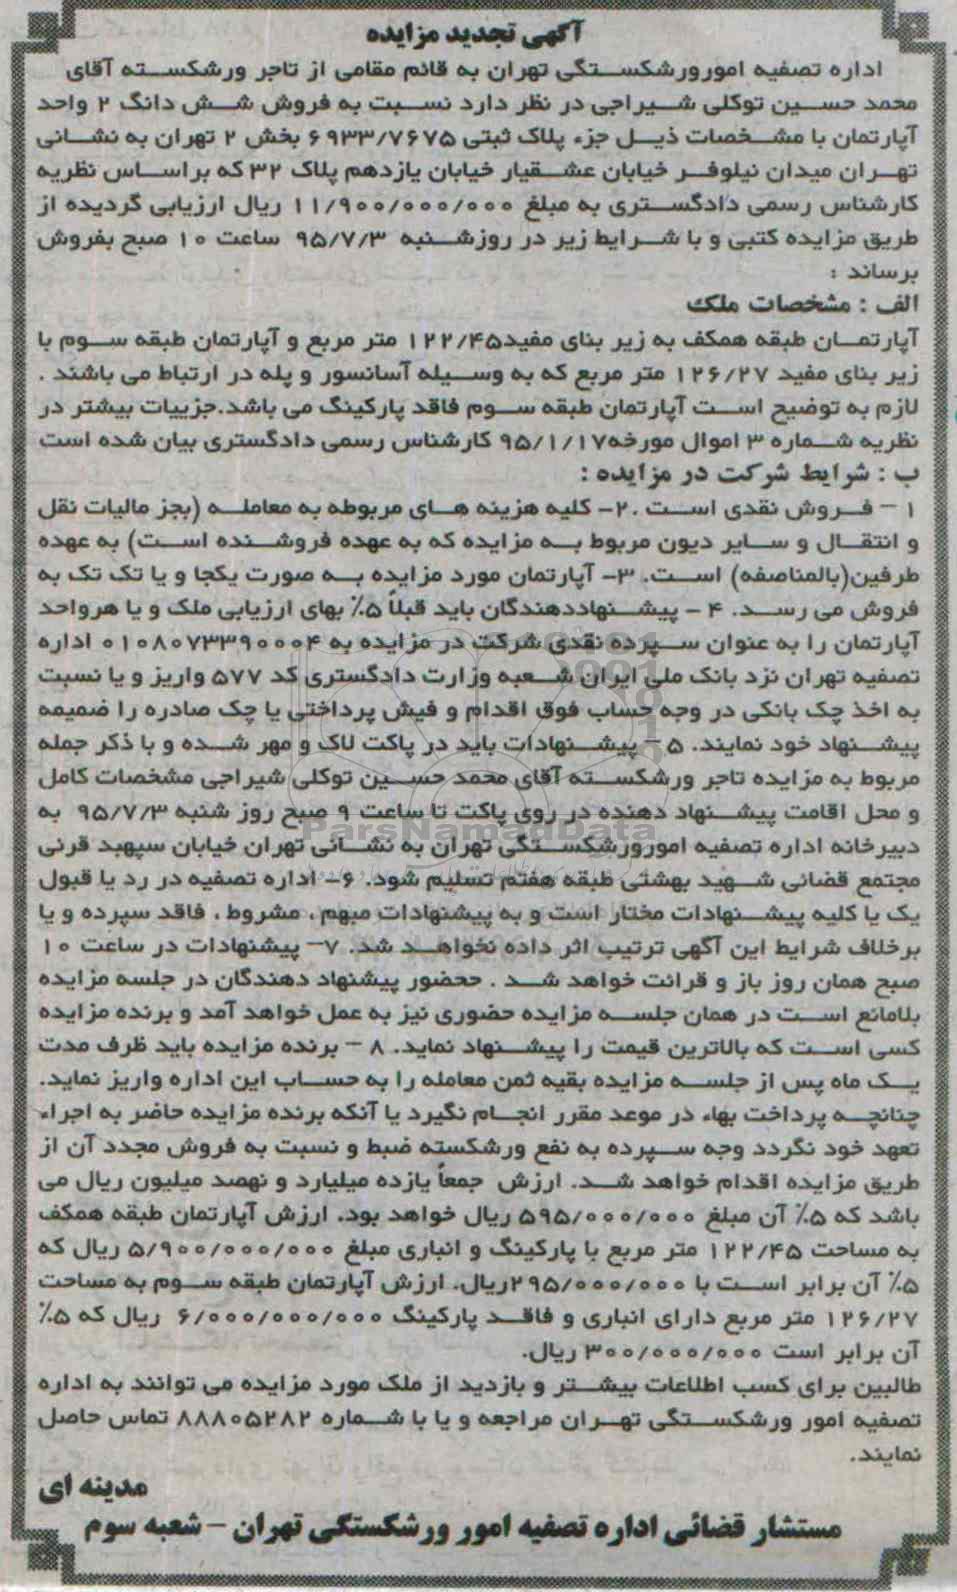 آگهی تجدید مزایده
اداره تصفیه امورورشکستگی تهران به قائم مقامی از تاجر ورشکسته آقای
محمد حسین توکلی شیراجی در نظر دارد نسبت به فروش شش دانگ ۲ واحد
آپارتمان با مشخصات ذیل جزء پلاک ثبتی ۶۹۳۳/۷۶۷۵ بخش ۲ تهران به نشانی
تهران میدان نیلوفر خیابان عشقیار خیابان یازدهم پلاک ۳۲ که براساس نظریه
کارشناس رسمی دادگستری به مبلغ ۱۱/۹۰۰/۰۰۰/۰۰۰ ریال ارزیابی گردیده از
طریق مزایده کتبی و با شرایط زیر در روزشنبه ۹۵/۷/۳ ساعت ۱۰ صبح بفروش
برساند :
الف : مشخصات ملک
آپارتمان طبقه همکف به زیر بنای مفید۱۲۲/۴۵ متر مربع و آپارتمان طبقه سوم با
زیر بنای مفید ۱۲۶/۲۷ متر مربع که به وسیله آسانسور و پله در ارتباط می باشند .
لازم به توضیح است آپارتمان طبقه سوم فاقد پارکینگ می باشد.جزییات بیشتر در
نظریه شماره ۳ اموال مورخه۹۵/۱/۱۷ کارشناس رسمی دادگستری بیان شده است
ب : شرایط شرکت در مزایده :
۱ – فروش نقدی است .۲- کلیه هزینه های مربوطه به معامله (بجز مالیات نقل
و انتقال و سایر دیون مربوط به مزایده که به عهده فروشنده است) به عهده
طرفین(بالمناصفه) است. ۳- آپارتمان مورد مزایده به صورت یکجا و یا تک تک به
فروش می رسد. ۴ - پیشنهاددهندگان باید قبلاً ۵٪ بهای ارزیابی ملک و یا هرواحد
آپارتمان را به عنوان سپرده نقدی شرکت در مزایده به ۰۱۰۸۰۷۳۳۹۰۰۰۴ اداره
تصفیه تهران نزد بانک ملی ایران شعبه وزارت دادگستری کد ۵۷۷ واریز و یا نسبت
به اخذ چک بانکی در وجه حساب فوق اقدام و فیش پرداختی یا چک صادره را ضمیمه
پیشنهاد خود نمایند. ۵ – پیشنهادات باید در پاکت لاک و مهر شده و با ذکر جمله
مربوط به مزایده تاجر ورشکسته آقای محمد حسین توکلی شیراجی مشخصات کامل
و محل اقامت پیشنهاد دهنده در روی پاکت تا ساعت ۹ صبح روز شنبه ۹۵/۷/۳ به
دبیرخانه اداره تصفیه امورورشکستگی تهران به نشانی تهران خیابان سپهبد قرنی
مجتمع قضائی شهید بهشتی طبقه هفتم تسلیم شود. ۶- اداره تصفیه در رد یا قبول
یک یا کلیه پیشنهادات مختار است و به پیشنهادات مبهم ، مشروط ، فاقد سپرده و یا
برخلاف شرایط این آگهی ترتیب اثر داده نخواهد شد. ۷– پیشنهادات در ساعت ۱۰
صبح همان روز باز و قرائت خواهد شد . حضور پیشنهاد دهندگان در جلسه مزایده
بلامانع است در همان جلسه مزایده حضوری نیز به عمل خواهد آمد و برنده مزایده
کسی است که بالاترین قیمت را پیشنهاد نماید. ۸ – برنده مزایده باید ظرف مدت
یک ماه پس از جلسه مزایده بقیه ثمن معامله را به حساب این اداره واریز نماید.
چنانچه پرداخت بهاء در موعد مقرر انجام نگیرد یا آنکه برنده مزایده حاضر به اجراء
تعهد خود نگردد وجه سپرده به نفع ورشکسته ضبط و نسبت به فروش مجدد آن از
طریق مزایده اقدام خواهد شد. ارزش جمعاً یازده میلیارد و نهصد میلیون ریال می
باشد که ۵٪ آن مبلغ ۵۹۵/۰۰۰/۰۰۰ ریال خواهد بود. ارزش آپارتمان طبقه همکف
به مساحت ۱۲۲/۴۵ متر مربع با پارکینگ و انباری مبلغ ۵/۹۰۰/۰۰۰/۰۰۰ ریال که
۵٪ آن برابر است با ۲۹۵/۰۰۰/۰۰۰ریال. ارزش آپارتمان طبقه سوم به مساحت
۱۲۶/۲۷ متر مربع دارای انباری و فاقد پارکینگ ۶/۰۰۰/۰۰۰/۰۰۰ ریال که ۵٪
آن برابر است ۳۰۰/۰۰۰/۰۰۰ ریال.
طالبین برای کسب اطلاعات بیشتر و بازدید از ملک مورد مزایده می توانند به اداره
تصفیه امور ورشکستگی تهران مراجعه و یا با شماره ۸۸۸۰۵۲۸۲ تماس حاصل
نمایند.
مدینه ای
مستشار قضائی اداره تصفیه امور ورشکستگی تهران – شعبه سوم
ParsNamadData